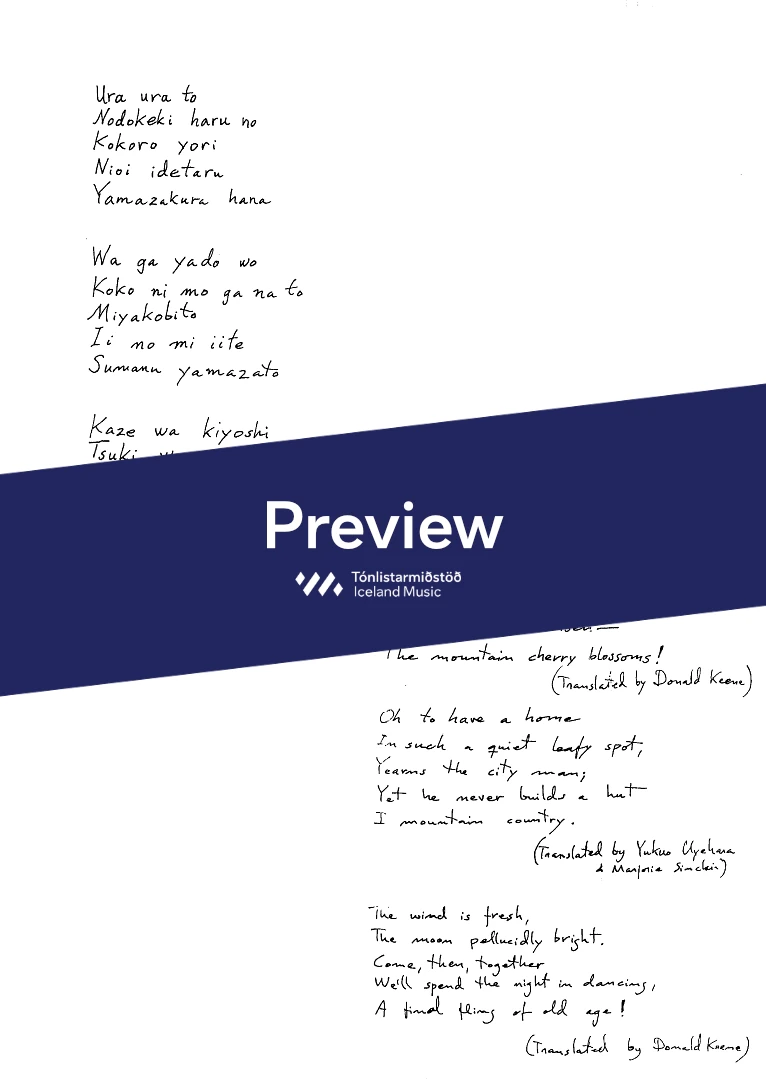 Ura ura to
Nodokeki haru no
Kokoro yori
Nioi idetaru
Yamazakura hana
Wa ga yado wo
Koko ni mo ga na to
Miyakobito
Ii no mi iite
Sumanu yamazato
Kaze wa kiyoshi
Tsuki
Preview
Tónlistarmiðstöð
Iceland Music
The mountain cherry blossoms!
(Translated by Donald Keene)
Oh to have a home
In such a quiet leafy spot,
Yearns the city man;
Yet he never builds a hut
I mountain country.
(Translated by Yukuo Uyehara
& Marjorie Sinclair)
The wind is fresh,
The moon pellucidly bright.
Come, then, together
We'll spend the night in dancing,
A final fling of old age!
(Translated by Donald Keene)